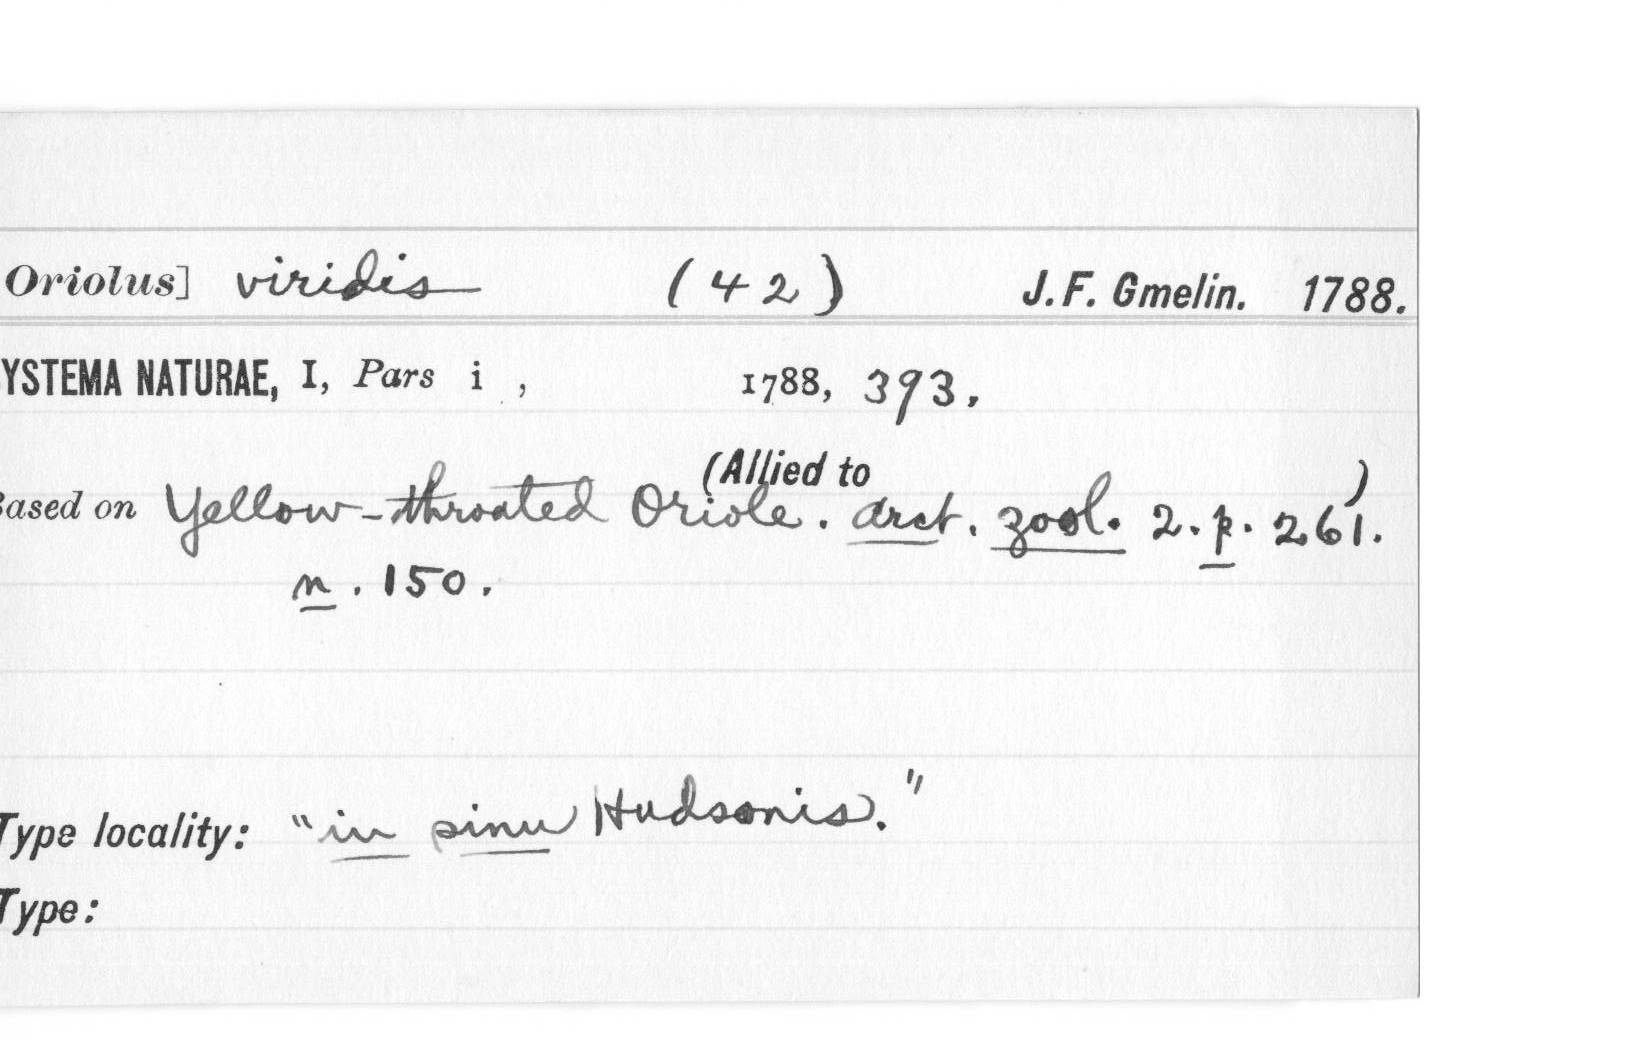 Oriolus] viridis (42) J. F. Gmelin. 1788.
YSTEMA NATURAE, I, Pars i , 1788, 393.
(Allied to )
Based on Yellow-throated Oriole. Arct. zool. 2. p. 261.
n. 150.
Type locality: "in sinu Hudsonis."
Type: